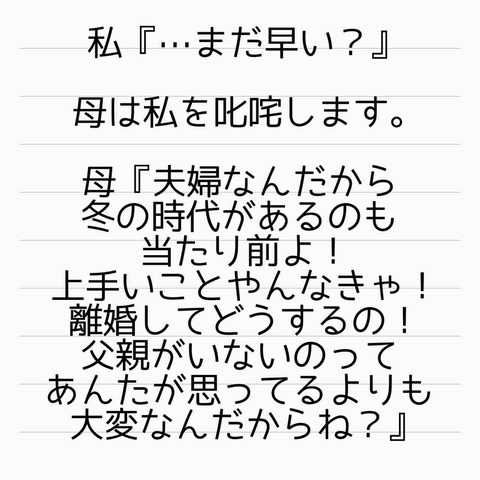 私『…まだ早い？』
母は私を叱咤します。
母『夫婦なんだから
冬の時代があるのも
当たり前よ！
上手いことやんなきゃ！
離婚してどうするの！
父親がいないのって
あんたが思ってるよりも
大変なんだからね？』